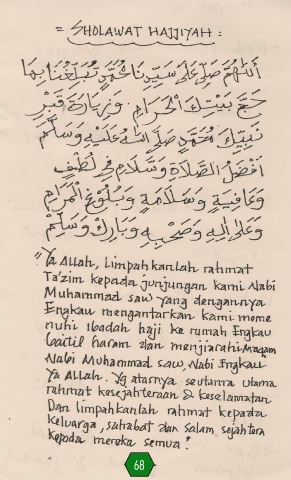 = SHOLAWAT HAJJIYAH =
اَللّٰهُمَّ صَلِّ عَلَى سَيِّدِنَا مُحَمَّدٍ تُبَلِّغُنَا بِهَا
حَجَّ بَيْتِكَ الْحَرَامِ . وَزِيَارَةَ قَبْرِ
نَبِيِّكَ مُحَمَّدٍ صَلَّى اللهُ عَلَيْهِ وَسَلَّمَ
اَفْضَلُ الصَّلَاةِ وَسَّلَامِ فِى لُطْفٍ
وَعَافِيَةٍ وَسَلَامَةٍ وَبُلُوْغِ الْمَرَامِ
وَعَلَى اٰلِهِ وَصَحْبِهِ وَبَارِكْ وَسَلِّمْ
"Ya Allah, Limpahkanlah rahmat
Ta'zim kepada junjungan kami Nabi
Muhammad saw yang dengannya
Engkau mengantarkan kami meme
nuhi ibadah haji ke rumah Engkau
baitil haram dan menjiarahi Maqam
Nabi Muhammad saw, Nabi Engkau
Ya ALLah. Yg atasnya seutama utama
rahmat kesejahteraan & keselamatan
Dan limpahkanlah rahmat kepada
keluarga, sahabat dan salam sejahtera
kepada mereka semua".
68